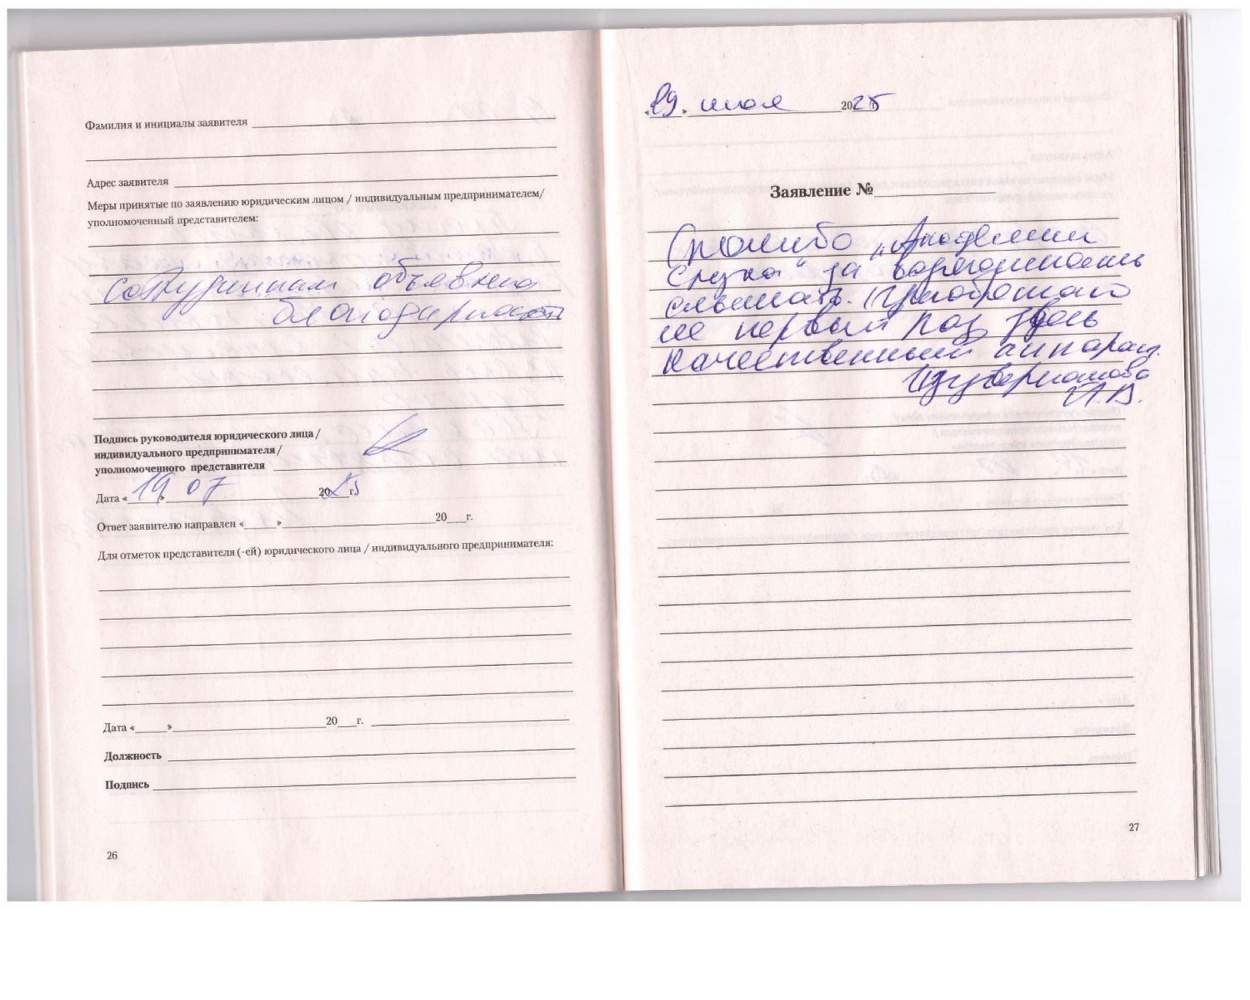 Фамилия и инициалы заявителя
Адрес заявителя
Меры принятые по заявлению юридическим лицом / индивидуальным предпринимателем/
уполномоченный представителем:
сотрудникам объявлена
благодарность
Подпись руководителя юридического лица /
индивидуального предпринимателя /
уполномоченного представителя
Дата «19» 07 2025 г.
Ответ заявителю направлен « » 20 г.
Для отметок представителя (-ей) юридического лица / индивидуального предпринимателя:
Дата « » 20 г.
Должность
Подпись
26
июля 2025
Заявление №
Спасибо „Академии
Слуха" за возможность
слышать. Приобретаю
не первый раз здесь
качественный аппарат.
27